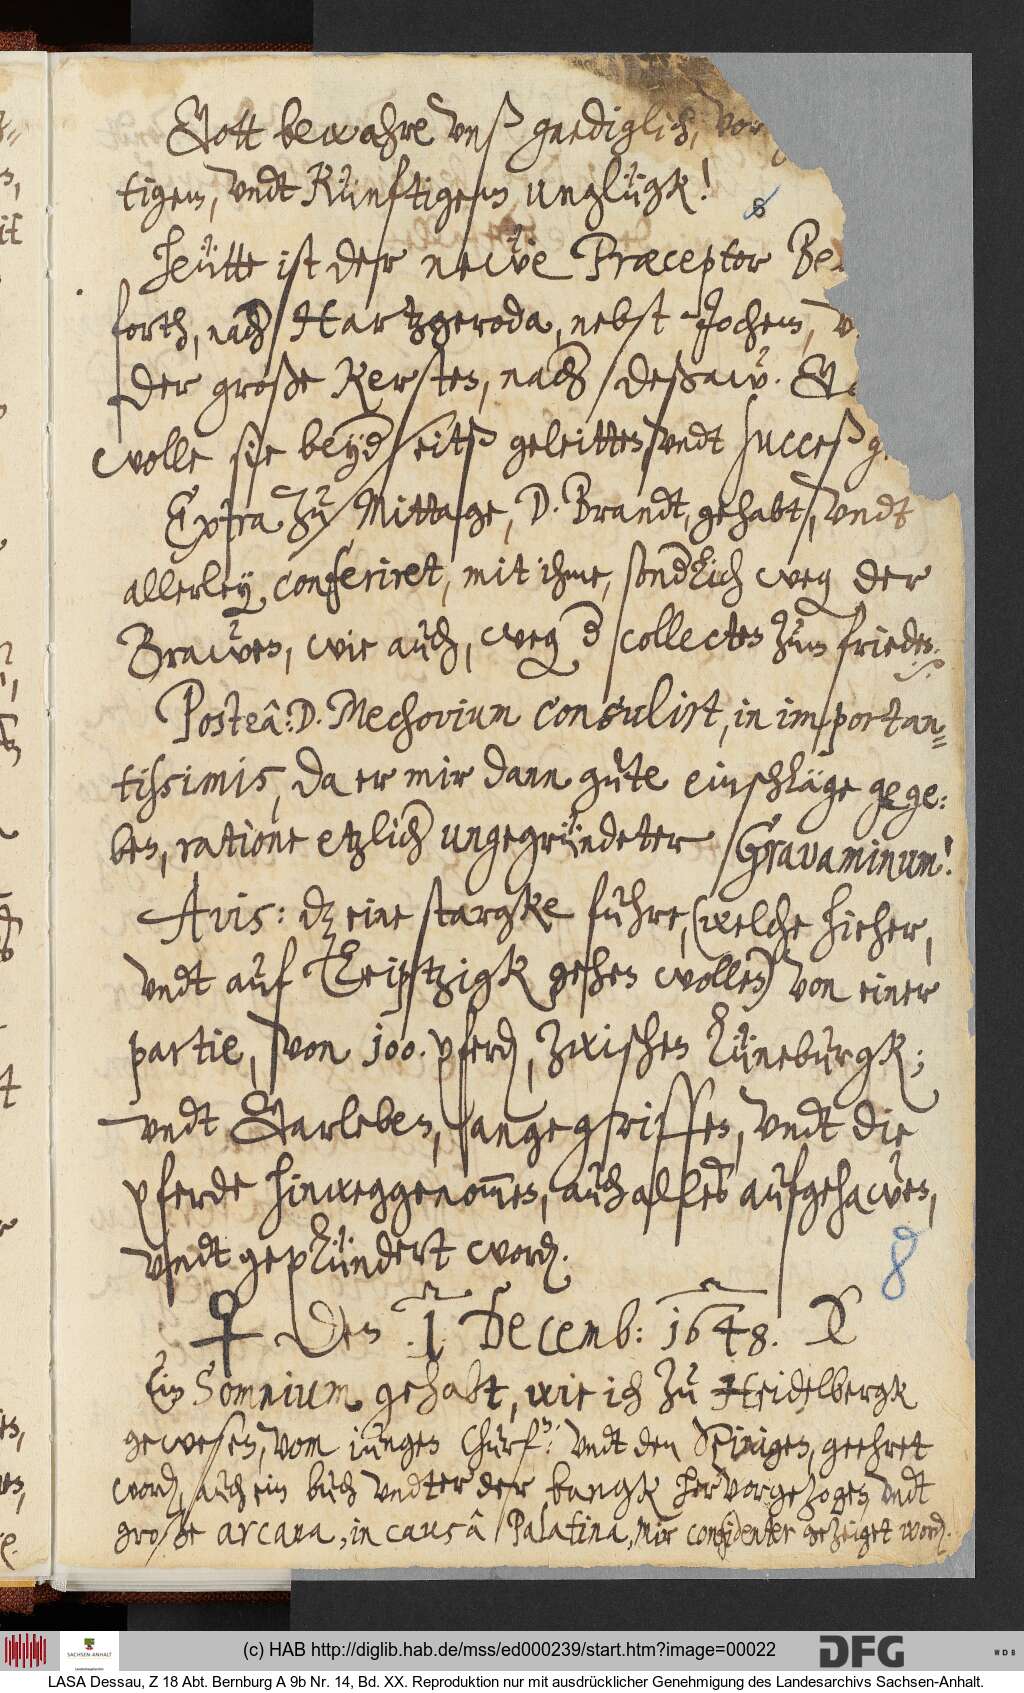 Gott bewahre unß gnediglich, vor
tigen, undt Künftigen unglügk!
8
Heütte ist der newe Præceptor Be
forth, nach Hartzgeroda, nebst Jochem, v
der große Kersten, nach Deßaw. G
wolle sie beyderseits geleitten, undt Succeß g
Extra zu Mittage, D. Brandt, gehabt, undt
allerley conferiret, mit ihme, sonderlich weg der
Brawen, wie auch, weg d collecten zum frieden.
Posteâ: D. Mechovium consulirt, in importan=
tissimis, da er mir dann gute einschläge gege:
ben, ratione etzlicher ungegründeter Gravaminum!
Avis: dz eine stargke fuhre, (welche hieher,
undt auf Leiptzigk gehen wollen) von einer
partie, von 100. pferden, zwischen Lüneburgk;
undt Garleben, angegriffen, undt die
pferde hinweggenommen, auch alles aufgehawen,
undt geplündert worden.
8
♀ Den 1. Decemb: 1648.
Ein Somnium gehabt, wie ich zu Heidelbergk
gewesen, vom jungen Churf: undt den Seinigen, geehret
worden, auch ein buch undter der bangk hervorgezogen, undt
große arcana, in causâ Palatina, mir confidenter gezeiget worden.
(c) HAB http://diglib.hab.de/mss/ed000239/start.htm?image=00022
SACHSEN-ANHALT
DFG
WDB
LASA Dessau, Z 18 Abt. Bernburg A 9b Nr. 14, Bd. XX. Reproduktion nur mit ausdrücklicher Genehmigung des Landesarchivs Sachsen-Anhalt.